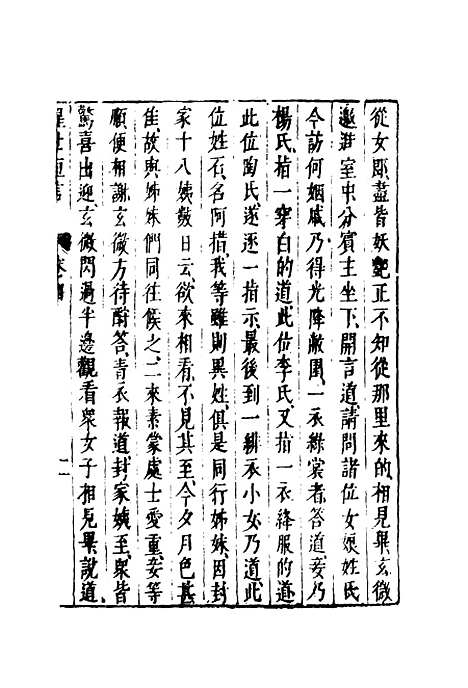 從女郎盡皆妖艷正不知從那里來的相見畢玄微
邀進室中分賓主坐下開言道請問諸位女娘姓氏
今訪何姻戚乃得光降敝園一衣綠裳者答道妾乃
楊氏指一穿白的道此位李氏又指一衣絳服的道
此位陶氏遂逐一指示最後到一緋衣小女乃道此
位姓石名阿措我等雖則異姓俱是同行姊妹因封
家十八姨數日云欲來相看不見其至今夕月色甚
佳故與姊妹們同往候之二來素蒙處士愛重妾等
順便相謝玄微方待酧答青衣報道封家姨至衆皆
驚喜出迎玄微閃過半邊觀看衆女子相見畢說道
醒世恒言 卷四 二